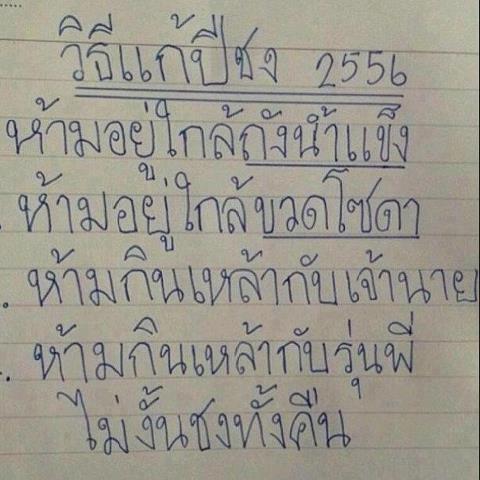 วิธีแก้ปีชง 2556
ห้ามอยู่ใกล้ถังน้ำแข็ง
. ห้ามอยู่ใกล้ขวดโซดา
. ห้ามกินเหล้ากับเจ้านาย
. ห้ามกินเหล้ากับรุ่นพี่
ไม่งั้นชงทั้งคืน